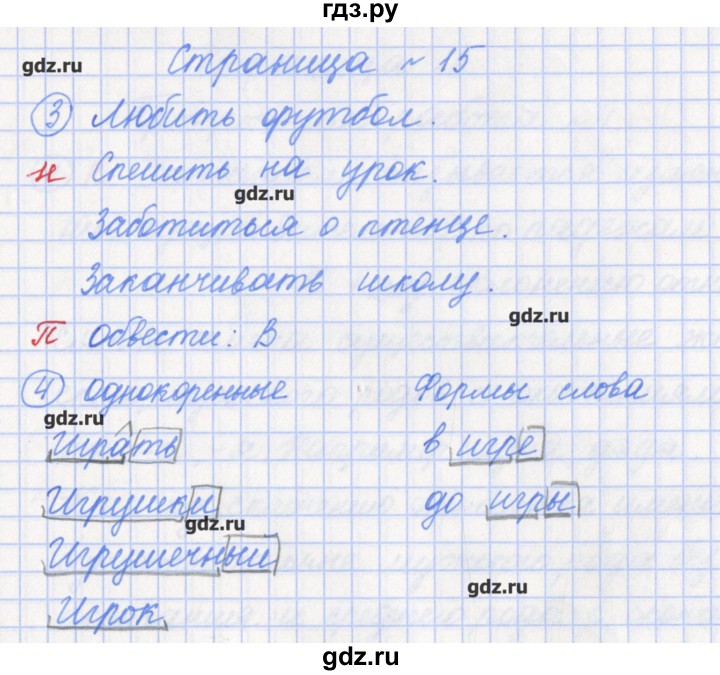 гдз.ру
Страница ~ 15
gdz.ru
3 Любить футбол.
н Спешить на урок.
gdz.ru
Заботиться о птенце.
Заканчивать школу.
gdz.ru
п обвести: В
4 однокоренные Формы слова
gdz.ru
Играть в игре
Игрушки до игры
gdz.ru
Игрушечный
gdz.ru
Игрок
gdz.ru